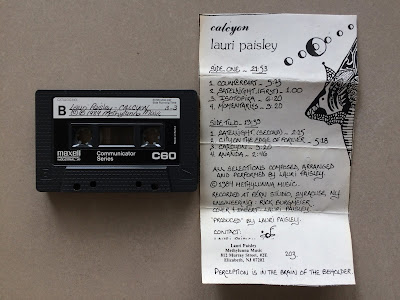 B
Lauri Paisley - CALCYON
© 1984 Methylunna Music
maxell
Communicator
Series
C60
calcyon
lauri paisley
SIDE ONE — 21:53
1. COUNTERPART -
2. DATELNIGHT (FIRST) - 2:00
3. ISOTOPIA - 6:20
4. MOMENTARIES -
SIDE TWO -
2. CITY ON THE EDGE OF FOREVER - 5:18
3. CALCYON -
4. ANANDA - 2:46
ALL SELECTIONS COMPOSED, ARRANGED
AND PERFORMED BY LAURI PAISLEY.
© 1984 METHYLUNNA MUSIC.
RECORDED AT STUDIO, SYRACUSE, NY
ENGINEERING: RICK
COVER & INSERT: LAURI PAISLEY
"PRODUCED" BY LAURI PAISLEY.
CONTACT:
Lauri Paisley
Methylunna Music
812 Murray Street, #2E
Elizabeth, NJ 07202
203
PERCEPTION IS IN THE BRAIN OF THE BEHOLDER.